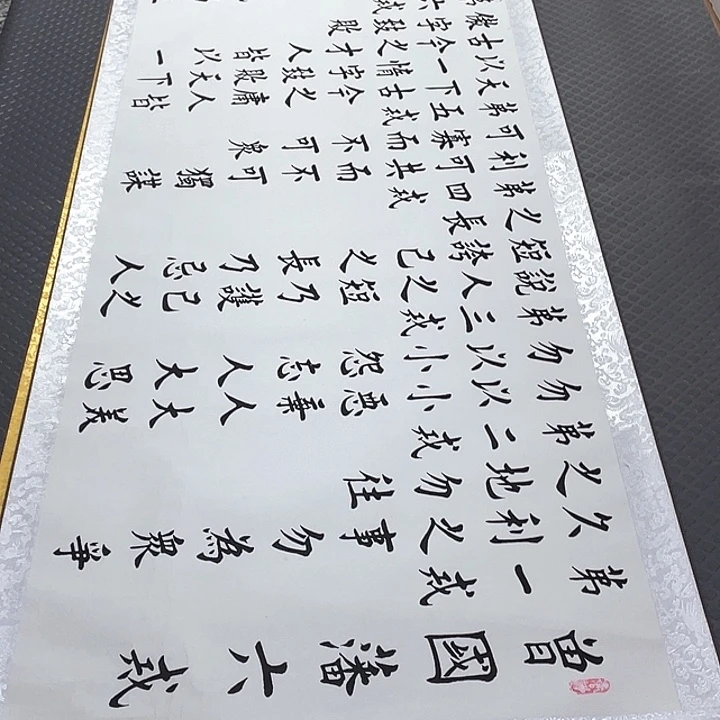 曾國藩六戒
第一戒
久利之事勿為眾爭
之地勿往
第二戒
勿以小惡棄人大義
勿以小怨忘人大恩
第三戒
說人之短乃護己之
短誇己之長乃忌人
之長
第四戒
利可共而不可獨謀
可寡而不可眾
第五戒
天下古今之庸人皆
以一惰字致敗天下
古今之才人皆以一
傲字致敗
第六戒